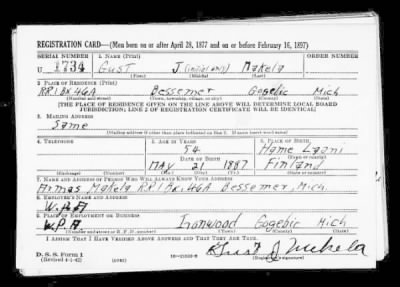 REGISTRATION CARD—(Men born on or after April 28, 1877 and on or before February 16, 1897)
SERIAL NUMBER 1. NAME (Print) ORDER NUMBER
U 1734 Gust J. (initial only) Makela
(First) (Middle) (Last)
2. PLACE OF RESIDENCE (Print)
RR1 BX 46A Bessemer Gogebic Mich
(Number and street) (Town, township, village, or city) (County) (State)
[THE PLACE OF RESIDENCE GIVEN ON THE LINE ABOVE WILL DETERMINE LOCAL BOARD
JURISDICTION; LINE 2 OF REGISTRATION CERTIFICATE WILL BE IDENTICAL]
3. MAILING ADDRESS
Same
(Mailing address if other than place indicated on line 2. If same insert word same)
4. TELEPHONE 5. AGE IN YEARS 6. PLACE OF BIRTH
54 Hame Laani
DATE OF BIRTH (Town or county)
MAY 21 1887 Finland
(Mo.) (Day) (Yr.) (State or country)
7. NAME AND ADDRESS OF PERSON WHO WILL ALWAYS KNOW YOUR ADDRESS
Armas Makela RR1 BX 46A Bessemer, Mich.
8. EMPLOYER'S NAME AND ADDRESS
W.P.A
9. PLACE OF EMPLOYMENT OR BUSINESS
W.P.A Ironwood Gogebic Mich
(Number and street or R. F. D. number) (Town) (County) (State)
I AFFIRM THAT I HAVE VERIFIED ABOVE ANSWERS AND THAT THEY ARE TRUE.
D. S. S. Form 1
(Revised 4-1-42) (over) Gust J Makela